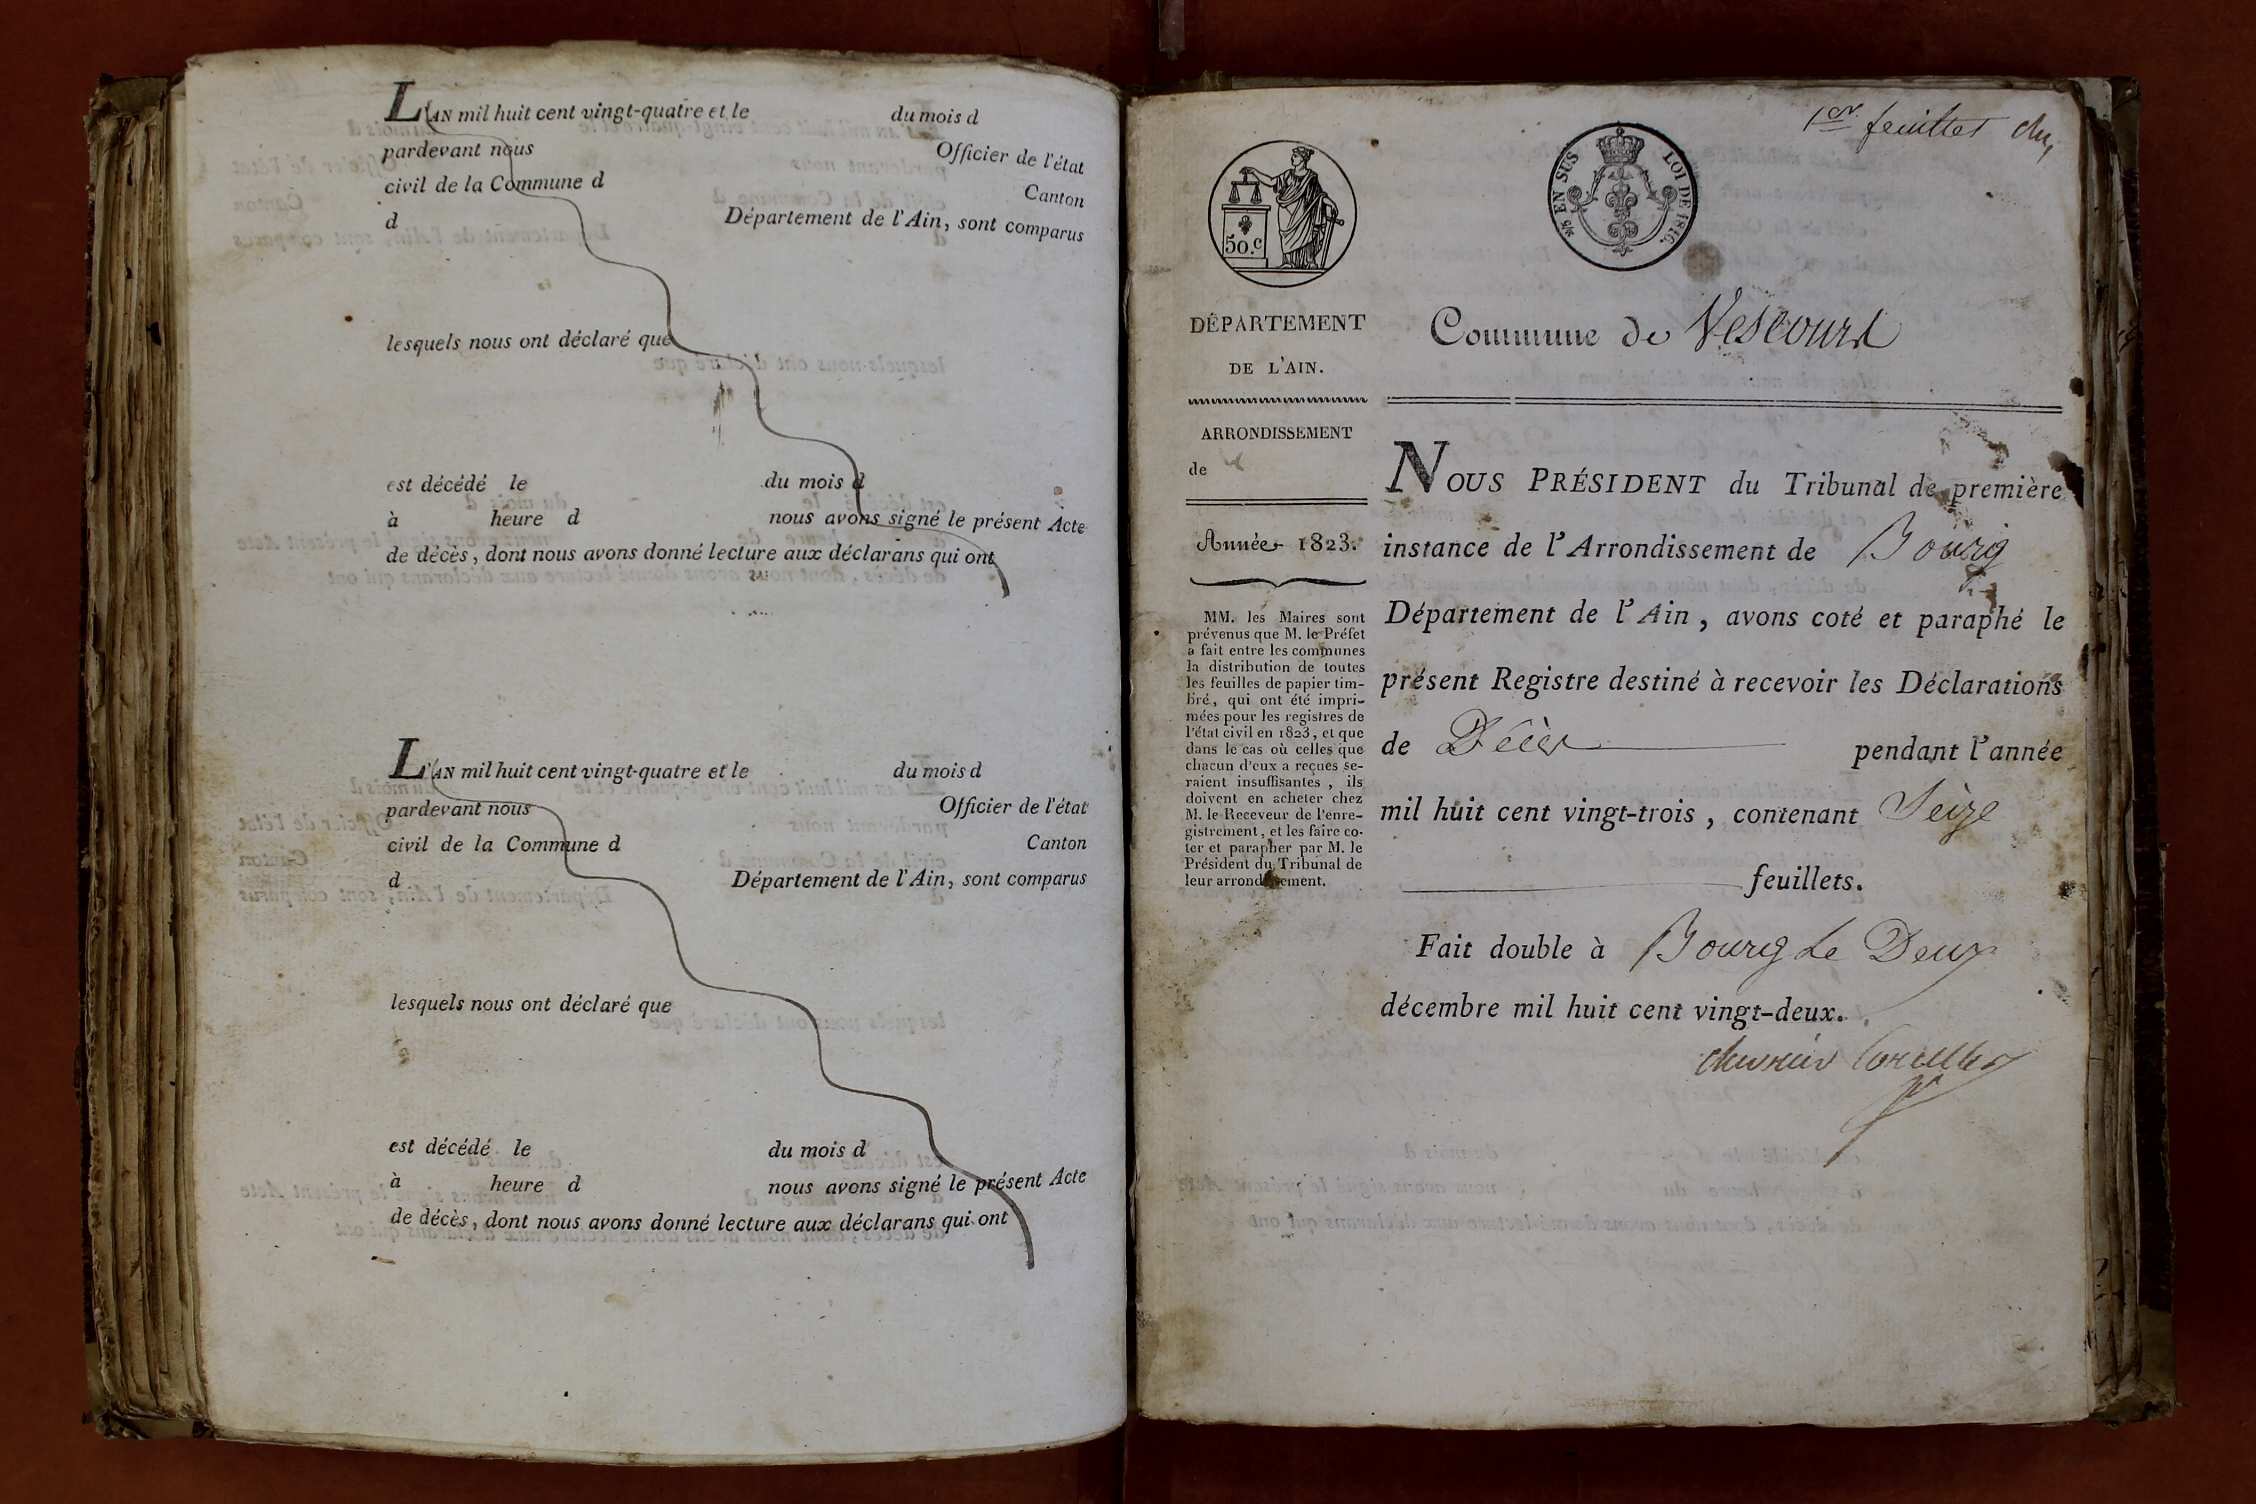 L'AN mil huit cent vingt-quatre et le du mois d
pardevant nous Officier de l'état
civil de la Commune d Canton
d Département de l'Ain, sont comparus
lesquels nous ont déclaré que
est décédé le du mois d
à heure d nous avons signé le présent Acte
de décès, dont nous avons donné lecture aux déclarans qui ont
L'AN mil huit cent vingt-quatre et le du mois d
pardevant nous Officier de l'état
civil de la Commune d Canton
d Département de l'Ain, sont comparus
lesquels nous ont déclaré que
est décédé le du mois d
à heure d nous avons signé le présent Acte
de décès, dont nous avons donné lecture aux déclarans qui ont
1er feuillet
EN SUS LOI DE 1816.
50.c
DÉPARTEMENT
DE L'AIN.
ARRONDISSEMENT
de
Année 1823.
MM. les Maires sont
prévenus que M. le Préfet
a fait entre les communes
la distribution de toutes
les feuilles de papier tim-
bré, qui ont été impri-
mées pour les registres de
l'état civil en 1823, et que
dans le cas où celles que
chacun d'eux a reçues se-
raient insuffisantes, ils
doivent en acheter chez
M. le Receveur de l'enre-
gistrement, et les faire co-
ter et parapher par M. le
Président du Tribunal de
leur arrondissement.
Commune de Vescours
NOUS PRÉSIDENT du Tribunal de première
instance de l'Arrondissement de Bourg
Département de l'Ain, avons coté et paraphé le
présent Registre destiné à recevoir les Déclarations
de Décès pendant l'année
mil huit cent vingt-trois, contenant Seize
feuillets.
Fait double à Bourg Le Deux
décembre mil huit cent vingt-deux.